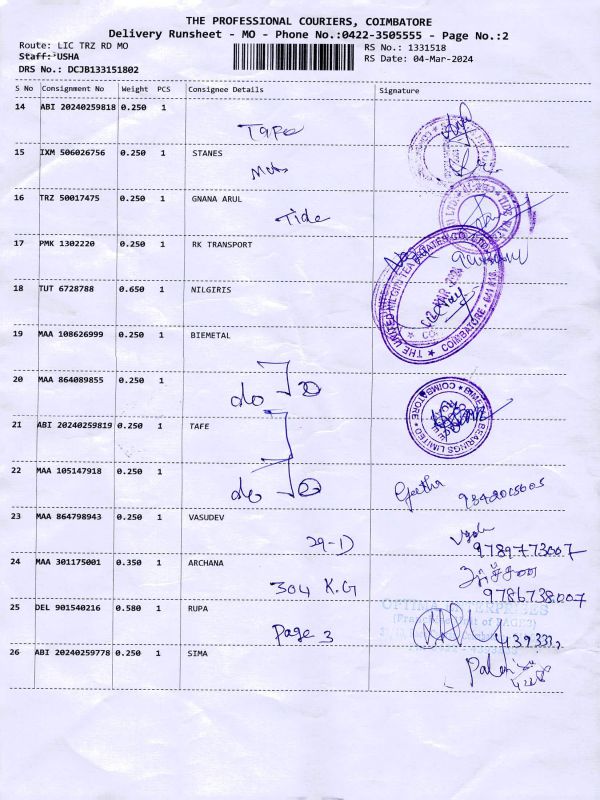 THE PROFESSIONAL COURIERS, COIMBATORE
Delivery Runsheet - MO - Phone No.:0422-3505555 - Page No.:2
Route: LIC TRZ RD MO
RS No.: 1331518
Staff: USHA
RS Date: 04-Mar-2024
DRS No.: DCJB133151802
S No Consignment No Weight PCS Consignee Details Signature
14 ABI 20240259818 0.250 1
Tape
15 IXM 506026756 0.250 1 STANES
16 TRZ 50017475 0.250 1 GNANA ARUL
Tide
17 PMK 1302220 0.250 1 RK TRANSPORT
18 TUT 6728788 0.650 1 NILGIRIS
THE UNITED NILGIRI TEA ESTATES CO. LTD. COIMBATORE - 641 018.
19 MAA 108626999 0.250 1 BIEMETAL
20 MAA 864089855 0.250 1
do
BIMETAL BEARINGS LIMITED COIMBATORE
21 ABI 20240259819 0.250 1 TAFE
22 MAA 105147918 0.250 1
do
Geetha
23 MAA 864798943 0.250 1 VASUDEV
29-D
9789773007
24 MAA 301175001 0.350 1 ARCHANA
304 K.G
9786738007
25 DEL 901540216 0.580 1 RUPA
Page 3
OPTIMA ENTERPRISES
26 ABI 20240259778 0.250 1 SIMA